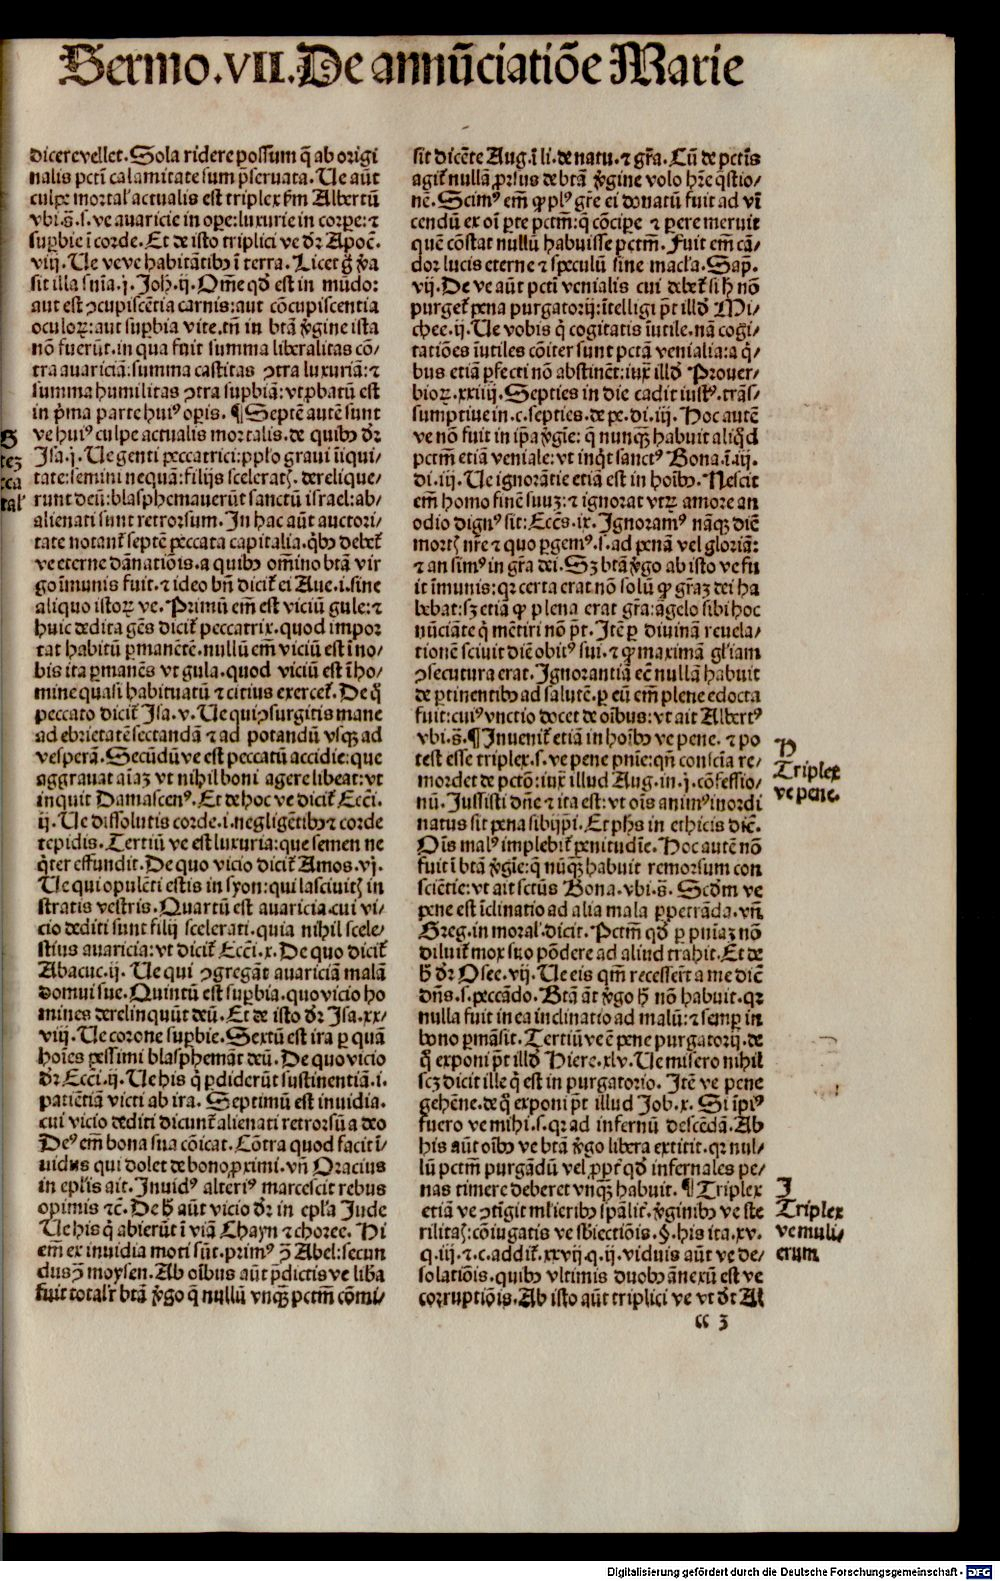 Sermo.VII.De annūciatiōe Marie
dicere vellet. Sola ridere possum q̄ ab origi
nalis pctī calamitate sum p̄seruata. Ue aūt
culpe mortal' actualis est triplex ẜm Albertū
vbi.s̄.s. ve auaricie in ope: luxurie in corpe: ⁊
supbie ī corde. Et de isto triplici ve dr̄ Apoc̄.
viij. Ue veve habitātibꝫ ī terra. Licet g̊ v̄a
sit illa snīa.j. Joh̄.ij. Om̄e qd̄ est in mūdo:
aut est ↄcupiscētia carnis: aut cōcupiscentia
oculoꝝ: aut supbia vite. tn̄ in btā v̓gine ista
nō fuerūt. in qua fuit summa liberalitas cō/
tra auariciā: summa castitas ↄtra luxuriā: ⁊
summa humilitas ↄtra supbiā: vt ꝓbatū est
in p̓ma parte huiꝰ opis. ¶ Septē autē sunt
ve huiꝰ culpe actualis mortalis. de quibꝫ dr̄
Jsa.j. Ue genti peccatrici: pp̄lo graui īiqui/
tate: semini nequā: filijs sceleratꝭ. derelique/
runt deū: blasphemauerūt sanctū israel: ab/
alienati sunt retrorsum. In hac aūt auctori/
tate notant̉ septē peccata capitalia. q̓bꝫ debet̉
ve eterne dānatiōis. a quibꝫ om̄ino btā vir
go īmunis fuit. ⁊ ideo bn̄ dicit̉ ei Aue.i. sine
aliquo istoꝝ ve. Primū em̄ est viciū gule: ⁊
huic dedita gēs dicit̉ peccatrix. quod impor
tat habitū pmanētē. nullū em̄ viciū est ī no/
bis ita pmanēs vt gula. quod viciū est ī ho/
mine quasi habituatū ⁊ citius exercet̉. De q̊
peccato dicit̉ Jsa.v. Ue qui ↄsurgitis mane
ad ebrietatē sectandā ⁊ ad potandū vsqꝫ ad
vesperā. Secūdū ve est peccatū accidie: que
aggrauat aīaꝫ vt nihil boni agere libeat: vt
inquit Damascenꝰ. Et de hoc ve dicit̉ Ecci̅.
ij. Ue dissolutis corde.i. negligētibꝫ ⁊ corde
tepidis. Tertiū ve est luxuria: que semen ne
q̓ter effundit. De quo vicio dicit̉ Amos.vj.
Ue qui opulēti estis in syon: qui lasciuitꝭ in
stratis vestris. Quartū est auaricia. cui vi/
cio dediti sunt filij scelerati. quia nihil scele/
stius auaricia: vt dicit̉ Ecci̅.x. De quo dicit̉
Abacuc.ij. Ue qui ↄgregāt auariciā malā
domui sue. Quintū est supbia. quo vicio ho
mines derelinquūt deū. Et de isto dr̄ Jsa.xx/
viij. Ue corone supbie. Sextū est ira p quā
hoīes pessimi blasphemāt deū. De quo vicio
dr̄ Ecci̅.ij. Ue his q̓ pdiderūt sustinentiā.i.
patiētiā victi ab ira. Septimū est inuidia.
cui vicio dediti dicunt̉ alienati retrorsū a deo
Deꝰ em̄ bona sua cōicat. Cōtra quod facit ī/
uidus qui dolet de bono ꝓximi. vn̄ Oracius
in eplīs ait. Inuidꝰ alteriꝰ marcescit rebus
opimis ⁊c̄. De h̊ aūt vicio dr̄ in epl̄a Jude
Ue his q̓ abierūt ī viā Chayn ⁊ chorec. Hi
em̄ ex inuidia moti sūt. primꝰ ↄ̄ Abel: secun
dus ↄ̄ moysen. Ab oībus aūt p̄dictis ve lib̓a
fuit totalr̄ btā v̓go q̄ nullū vnqꝫ pctm̄ cōmi/
sit dicēte Aug. ī li. de natu. ⁊ gr̄a. Cū de pctīs
agit̉ nullā ꝓrsus de btā v̓gine volo hr̄e q̄stio/
nē. Scimꝰ em̄ ꝙ plꝰ gr̄e ei donatū fuit ad vī
cendū ex oī pte pctm̄: q̄ cōcipe ⁊ pere meruit
quē cōstat nullū habuisse pctm̄. Fuit em̄ cā/
dor lucis eterne ⁊ speculū sine macl̄a. Sap̄.
vij. De ve aūt pctī venialis cui debet̉ si h̓ nō
purget̉ pena purgatorij: ītelligi p̄t illd̄ Mi/
chee.ij. Ue vobis q̓ cogitatis īutile. nā cogi/
tatiōes īutiles cōiter sunt pctā venialia: a q̓/
bus etiā pfecti nō abstinēt: iux̄ illd̄ Prouer/
bioꝝ.xxiiij. Septies in die cadit iustꝰ. trās/
sumptiue in.c. septies. de pe.di.iij. Hoc autē
ve nō fuit in ip̄a v̓gīe: q̄ nunqꝫ habuit aliq̊d
pctm̄ etiā veniale: vt inq̓t sanctꝰ Bona.ī.iij.
di.iij. Ue ignorātie etiā est in hoībꝫ. Nescit
em̄ homo finē suuꝫ: ⁊ ignorat vtrꝝ amore an
odio dignꝰ sit: Eccs̄.ix. Ignoramꝰ nāqꝫ diē
mortꝭ nr̄e ⁊ quo pgemꝰ.s. ad penā vel gloriā:
⁊ an simꝰ in gr̄a dei. Sꝫ btā v̓go ab isto ve fu
it īmunis: qꝛ certa erat nō solū ꝙ gr̄aꝫ dei ha
bebat: sꝫ etiā ꝙ plena erat gr̄a: āgelo sibi hoc
nūciāte q̓ mētiri nō p̄t. Itē p diuinā reuela/
tionē sciuit diē obitꝰ sui. ⁊ ꝙ maximā gl̄iam
ↄsecutura erat. Ignorantiā ec̄ nullā habuit
de ptinentibꝫ ad salutē. p eū em̄ plene edocta
fuit: cuiꝰ vnctio docet de oībus: vt ait Albertꝰ
vbi.s̄. ¶ Inuenit̉ etiā in hoībꝫ ve pene. ⁊ po
test esse triplex.s. ve pene pnīe: qn̄ conscīa re/
mordet de pctō: iux̄ illud Aug. in.j. cōfessio/
nū. Iussisti dn̄e ⁊ ita est: vt oīs animꝰ inordi
natus sit pena sibijpi̅. Et ph̄s in ethicis dic̄.
Oīs malꝰ implebit̉ penitudīe. Hoc autē nō
fuit ī btā v̓gīe: q̄ nūqꝫ habuit remorsum con
sciētie: vt ait sctūs Bona. vbi.s̄. Scd̄m ve
pene est īclinatio ad alia mala ppetrāda. vn̄
Greg. in moral'. dicit. Pctm̄ qd̄ p pnīaꝫ nō
diluit̉ mox suo pōdere ad aliud trahit. Et de
h̊ dr̄ Osee.vij. Ue eis qm̄ recesser̄t a me diē
dn̄s.s. peccādo. Btā āt v̓go h̊ nō habuit. qꝛ
nulla fuit in ea inclinatio ad malū: ⁊ semp in
bono pmāsit. Tertiū ve ē pene purgatorij: de
q̊ exponi p̄t illd̄ Hiere.xlv. Ue misero nihil
scꝫ dicit ille q̓ est in purgatorio. Itē ve pene
gehēne. de q̊ exponi p̄t illud Job.x. Si īpiꝰ
fuero ve mihi.s. qꝛ ad infernū descēdā. Ab
his aūt oībꝫ ve btā v̓go libera extitit. qꝛ nul/
lū pctm̄ purgādū vel ꝓpt̓ qd̄ infernales pe/
nas timere deberet vnqꝫ habuit. ¶ Triplex
etiā ve ↄtigit ml̓ieribꝫ spālit̉. v̓ginibꝫ ve ste
rilitatꝭ: cōiugatis ve sbiectiōis. §. his ita.xv.
q.iij. ⁊.c. addit̉.xxvij.q.ij. viduis aūt ve de/
solatiōis. quibꝫ vltimis duobꝫ ānexū est ve
corruptiōis. Ab isto aūt triplici ve vt dr̄t Al
cc 3
G
tez
cca
tal'
H
Triplex
ve pene.
I
Triplex
ve muli/
erum
Digitalisierung gefördert durch die Deutsche Forschungsgemeinschaft - DFG